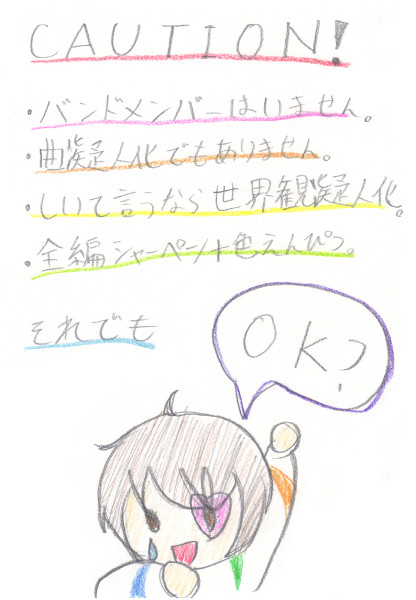 CAUTION!
・バンドメンバーはいません。
・曲擬人化でもありません。
・しいて言うなら世界観擬人化。
・全編シャーペン+色えんぴつ。
それでも
OK?